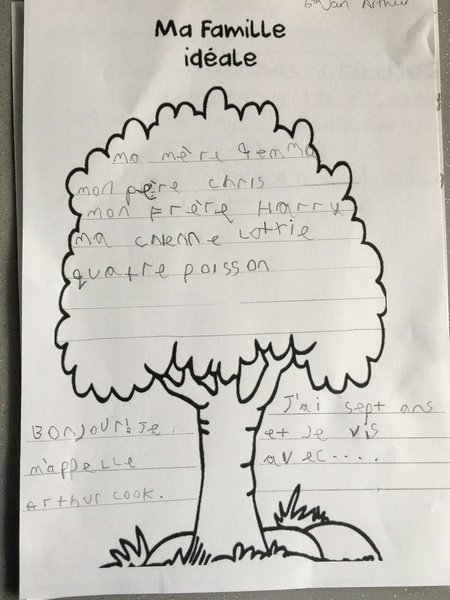 6th Jan Arthur
Ma Famille
idéale
ma mère Gemma
mon père chris
mon Frère Harry
ma chienne Lottie
quatre poisson
BonJour! Je
m'appelle
Arthur Cook.
J'ai sept ans
et Je vis
avec....